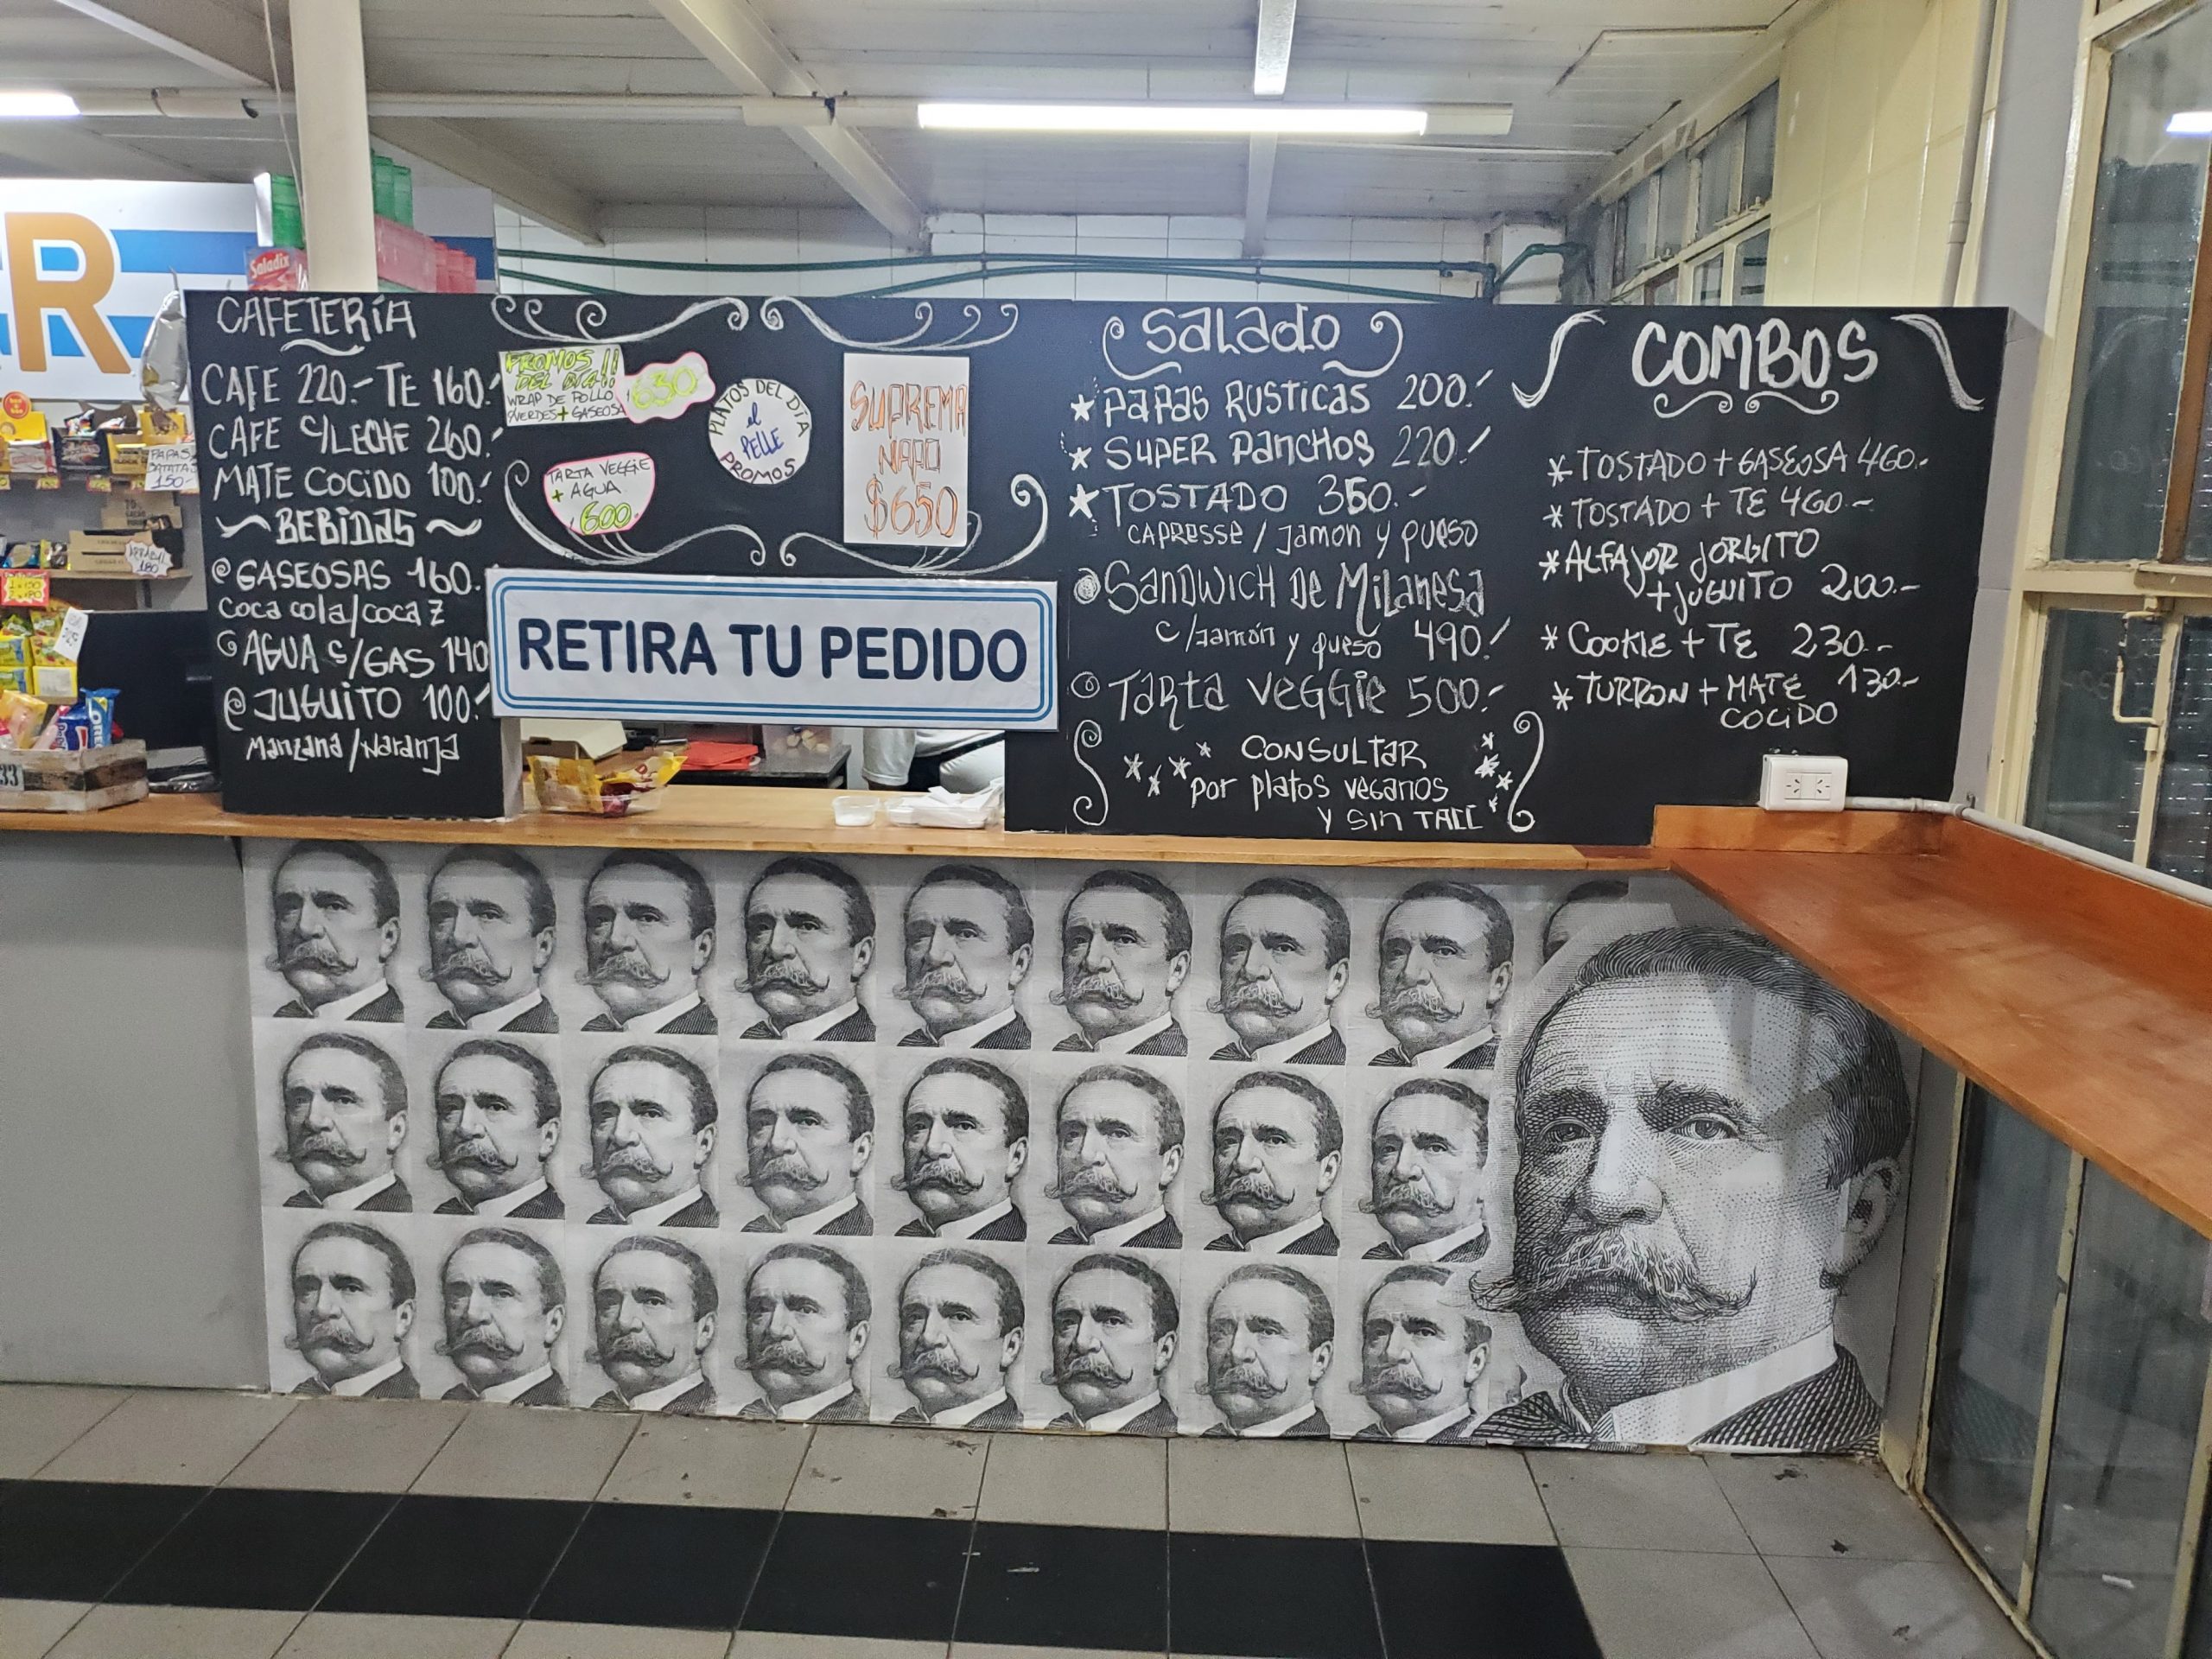 R
Saladix
CAFETERÍA
CAFE 220.- TE 160.-
CAFE C/LECHE 260.-
MATE COCIDO 100.-
BEBIDAS
GASEOSAS 160.-
Coca cola/coca Z
AGUA S/GAS 140
JUGUITO 100.-
Manzana/Naranja
PROMOS!!
DEL DÍA!!
WRAP DE POLLO
VERDES + GASEOSA
630
TARTA VEGGIE
+ AGUA
600
PLATOS DEL DÍA
el
PELLE
PROMOS
SUPREMA
NAPO
$650
RETIRA TU PEDIDO
Salado
PAPAS RUSTICAS 200.-
SUPER PANCHOS 220.-
TOSTADO 350.-
CAPRESSE / Jamon y queso
SANDWICH DE Milanesa
c/Jamón y queso 490.-
Tarta veggie 500.-
CONSULTAR
por platos veganos
y sin TACC
COMBOS
* TOSTADO + GASEOSA 460.-
* TOSTADO + TE 460.-
* ALFAJOR JORGITO
+ JUGUITO 200.-
* COOKIE + TE 230.-
* TURRON + MATE 130.-
COCIDO
PAPAS
BATATAS
150-
180
33